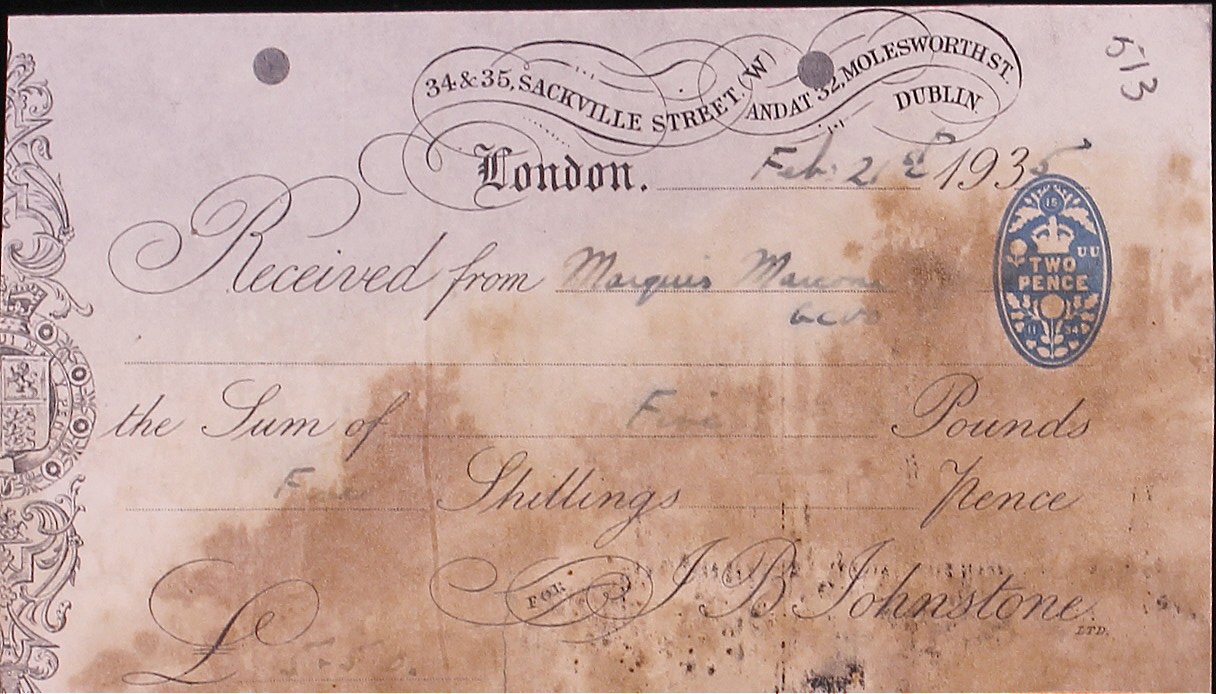 513
34 & 35, SACKVILLE STREET. (W) AND AT 32, MOLESWORTH ST. DUBLIN.
London. Feb: 21st 1935
Received from Marquis Marconi
GCVO
15
UU
TWO
PENCE
11 34
the Sum of Five Pounds
Five Shillings Pence
FOR J B Johnstone LTD.
£ 5-5 0.